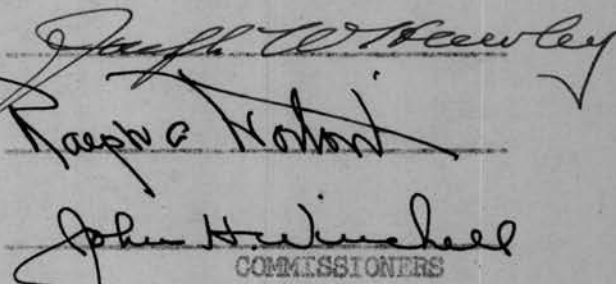 Joseph W Hawley
Ralph C Horton
John H. Winchell
COMMISSIONERS